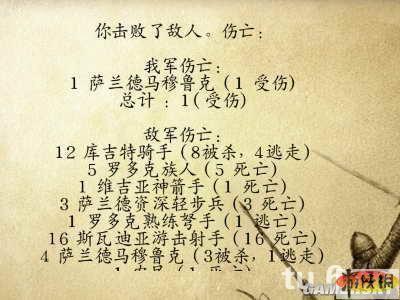 你击败了敌人。伤亡：
我军伤亡：
1 萨兰德马穆鲁克 (1 受伤)
总计：1(受伤)
敌军伤亡：
12 库吉特骑手 (8被杀，4逃走)
5 罗多克族人 (5 死亡)
1 维吉亚神箭手 (1 死亡)
3 萨兰德资深轻步兵 (3 死亡)
1 罗多克熟练弩手 (1 逃亡)
16 斯瓦迪亚游击射手 (16 死亡)
4 萨兰德马穆鲁克 (3被杀，1逃走)